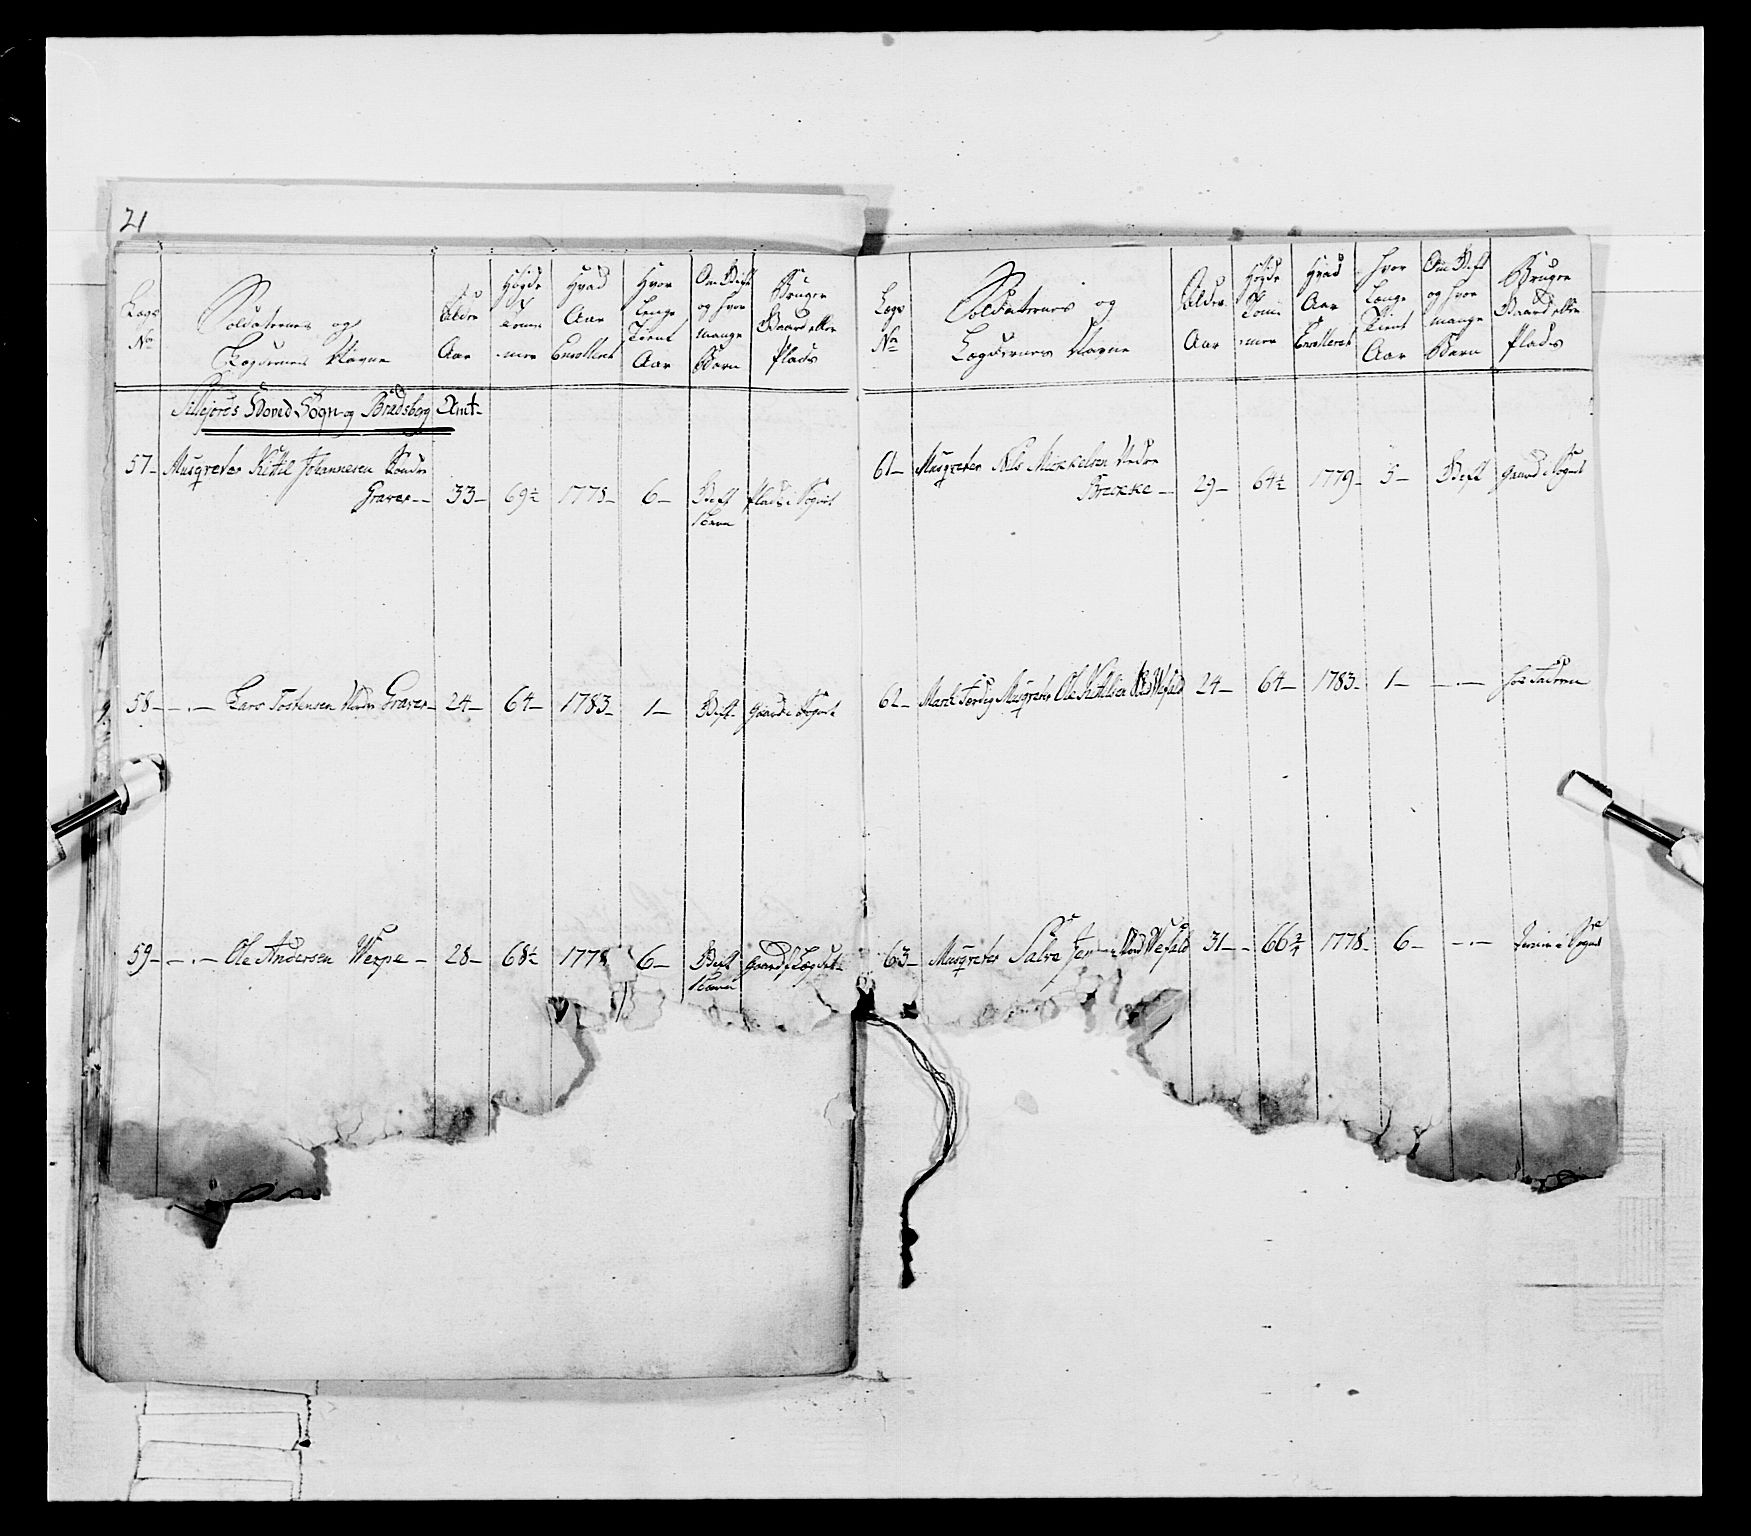 21
Legs No
Soldaternes og Legdernes Navne
Alder Aar
Høyde Tommer
Hvad Aar Enrolleret
Hvor Længe Tient Aar
Om Gift og hvor mange Børn
Bruger Gaard eller Plads
Sillejords Hoved Sogn og Bradsberg Amt-
57- Musqueter Kittil Johannesen Søndre
Graver-- 33- 69½ 1778- 6- Gift Plads i Sognet
58- -.- Lars Tostensen Nordre Graver- 24- 64- 1783- 1- Gift- Gaard i Sognet
59- -.- Ole Andersen Werpe- 28- 68½ 1778 6- Gift Gaard i Legdet
Legs No
Soldaternes og Legdernes Navne
Alder Aar
Høyde Tommer
Hvad Aar Enrolleret
Hvor Længe Tient Aar
Om Gift og hvor mange Børn
Bruger Gaard eller Plads
61- Musqueter Nils Mikkelsen Nedre
Brekke- 29- 64½ 1779- 5- Gift Gaard i Sognet
62- March Færdig Musqueter Ole Kittilsen Nord Wefald 24- 64- 1783- 1- -.- hos Faderen
63- Musqueter Salve Nord Wefald 31- 66¾ 1778- 6- -.- i Sognet